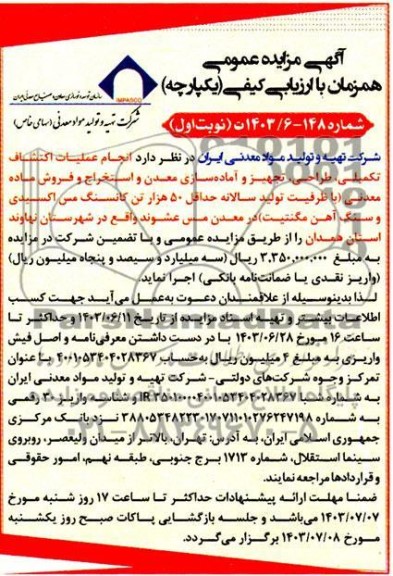 آگهی مزایده عمومی
همزمان با ارزیابی کیفی (یکپارچه)
IMPASCO
شرکت تهیه و تولید مواد معدنی (سهامی خاص)
شماره ۱۴۸-۱۴۰۳/۶ت (نوبت اول)
شرکت تهیه و تولید مواد معدنی ایران در نظر دارد انجام عملیات اکتشاف
تکمیلی، طراحی، تجهیز و آماده‌سازی معدن و استخراج و فروش ماده
معدنی (با ظرفیت تولید سالانه حداقل ۵۰ هزار تن کانسنگ مس اکسیدی
و سنگ آهن مگنتیت) در معدن مس عشوند واقع در شهرستان نهاوند
استان همدان را از طریق مزایده عمومی و با تضمین شرکت در مزایده
به مبلغ ۳.۳۵۰.۰۰۰.۰۰۰ ریال (سه میلیارد و سیصد و پنجاه میلیون ریال)
(واریز نقدی یا ضمانت‌نامه بانکی) اجرا نماید.
لذا بدینوسیله از علاقمندان دعوت به‌عمل می‌آید جهت کسب
اطلاعات بیشتر و تهیه اسناد مزایده از تاریخ ۱۴۰۳/۰۶/۱۱ و حداکثر تا
ساعت ۱۶ مورخ ۱۴۰۳/۰۶/۲۸ با در دست داشتن معرفی‌نامه و اصل فیش
واریزی به مبلغ ۴ میلیون ریال به‌حساب ۴۰۰۱۰۵۳۴۰۴۰۲۸۳۶۷ با عنوان
تمرکز وجوه شرکت‌های دولتی - شرکت تهیه و تولید مواد معدنی ایران
به شماره شبا و شناسه واریز ۳۰ رقمی
به شماره نزد بانک مرکزی
جمهوری اسلامی ایران، به آدرس: تهران، بالاتر از میدان ولیعصر، روبروی
سینما استقلال، شماره ۱۷۱۳ برج جنوبی، طبقه نهم، امور حقوقی
و قراردادها مراجعه نمایند.
ضمنا مهلت ارائه پیشنهادات حداکثر تا ساعت ۱۷ روز شنبه مورخ
۱۴۰۳/۰۷/۰۷ می‌باشد و جلسه بازگشایی پاکات صبح روز یکشنبه
مورخ ۱۴۰۳/۰۷/۰۸ برگزار می‌گردد.